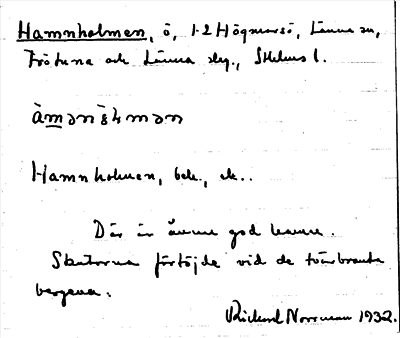 Hamnholmen, ö, 1-2 Högmarsö, Länna sn,
Frötuna och Länna slg., Sthlms l.
àmǝnɦ̀mǝn
Hamnholmen, bek., ek..
Där är ännu god hamn.
Skutorna förtöjde vid de tvärbranta
bergen.
Rickard Norrman 1932.